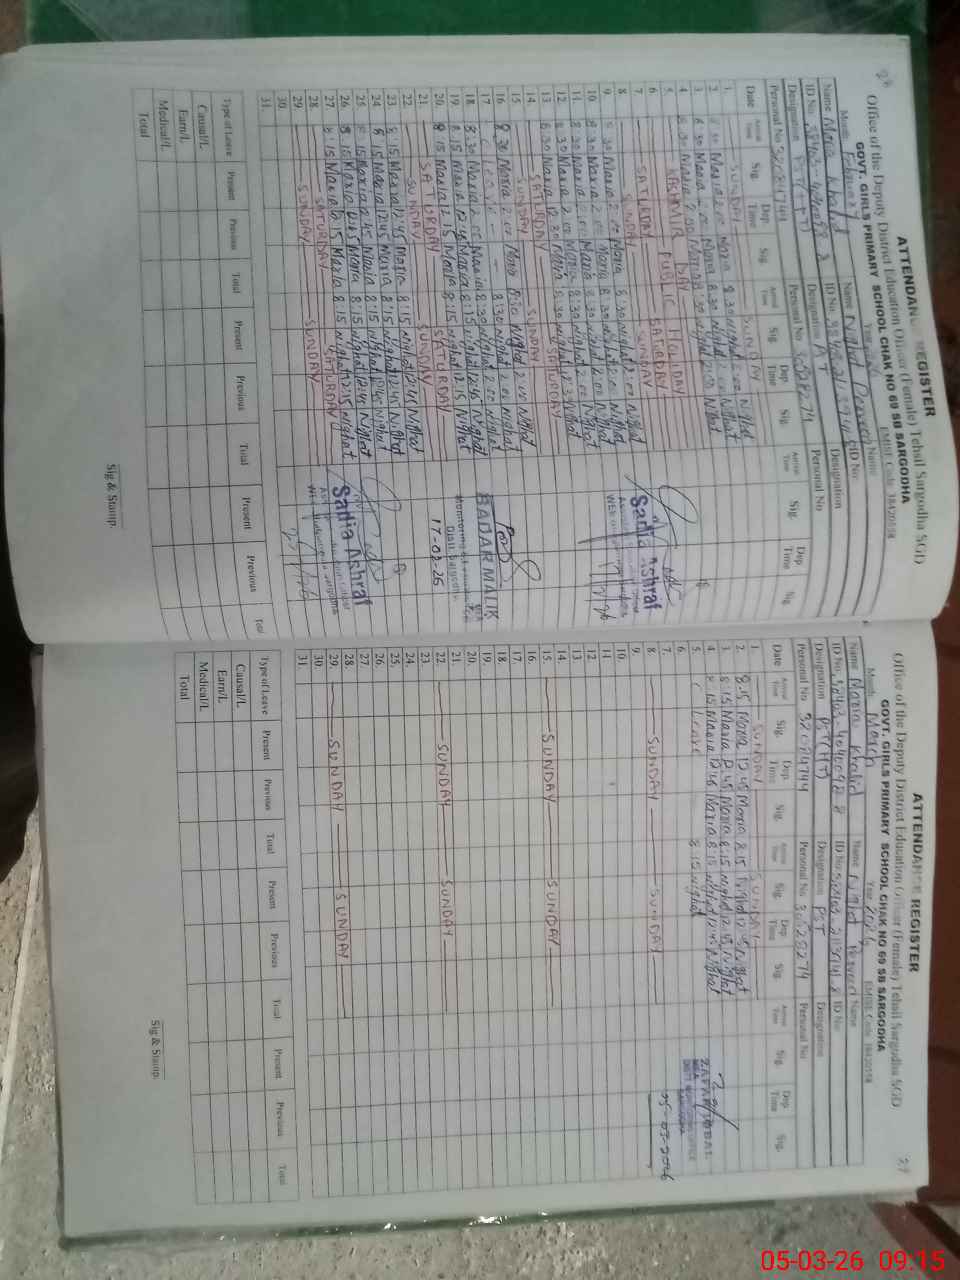 28
ATTENDANCE REGISTER
Office of the Deputy District Education Officer (Female) Tehsil Sargodha SGD
GOVT. GIRLS PRIMARY SCHOOL CHAK NO 69 SB SARGODHA
Month February Year 2026 EMISE Code 38420558
Name Maria Khalid Name Nighat Perveen Name
ID No. ID No ID No
Designation PST Designation Designation
Personal No Personal No 30528274 Personal No
Date Arrival Time Sig. Dep Time Sig. Arrival Time Sig. Dep. Time Sig. Arrival Time Sig. Dep Time Sig
1. SUNDAY SUNDAY
2. 8:30 Maria 2:00 Maria 8:30 Nighat 2:00 Nighat
3. 8:30 Maria 2:00 Maria 8:30 Nighat 2:00 Nighat
4. 8:30 Maria 2:00 Maria 8:30 Nighat 2:00 Nighat
5. KASHMIR DAY PUBLIC HOLIDAY
6
7 SATURDAY SATURDAY
8 SUNDAY SUNDAY
9. 8:30 Maria 2:00 Maria 8:30 Nighat 2:00 Nighat
10. 8:30 Maria 2:00 Maria 8:30 Nighat 2:00 Nighat
11. 8:30 Maria 2:00 Maria 8:30 Nighat 2:00 Nighat
12. 8:30 Maria 2:00 Maria 8:30 Nighat 2:00 Nighat
13. 8:30 Maria 12:30 Maria 8:30 Nighat Nighat
14. SATURDAY SATURDAY
15. SUNDAY SUNDAY
16 8:30 Maria 2:00 Maria 8:30 Nighat 2:00 Nighat
17 Leave 8:30 Nighat 2:00 Nighat
18. 8:30 Maria 2:00 Maria 8:30 Nighat 2:00 Nighat
19. 8:15 Maria 12:45 Maria 8:15 Nighat 12:45 Nighat
20. 8:15 Maria 12:15 Maria 8:15 Nighat 12:15 Nighat
21. SATURDAY SATURDAY
22. SUNDAY SUNDAY
23. 8:15 Maria 12:45 Maria 8:15 Nighat 12:45 Nighat
24. 8:15 Maria 12:45 Maria 8:15 Nighat 12:45 Nighat
25. 8:15 Maria 12:45 Maria 8:15 Nighat 12:45 Nighat
26. 8:15 Maria 12:45 Maria 8:15 Nighat 12:45 Nighat
27. 8:15 Maria 12:15 Maria 8:15 Nighat 12:15 Nighat
28. SATURDAY SATURDAY
29. SUNDAY SUNDAY
30.
31.
Sadia Ashraf
BADAR MALIK
17-02-26
Sadia Ashraf
Type of Leave Present Previous Total Present Previous Total Present Previous Total
Causal/L
Earn/L
Medical/L
Total
Sig & Stamp.
29
ATTENDANCE REGISTER
Office of the Deputy District Education Officer (Female) Tehsil Sargodha SGD
GOVT. GIRLS PRIMARY SCHOOL CHAK NO 69 SB SARGODHA
Month March Year 2026 EMISE Code 38420558
Name Maria Khalid Name Nighat Perveen Name
ID No. ID No ID No
Designation PST Designation PST Designation
Personal No 32084744 Personal No 30528274 Personal No
Date Arrival Time Sig. Dep Time Sig. Arrival Time Sig. Dep. Time Sig. Arrival Time Sig. Dep Time Sig.
1. SUNDAY SUNDAY
2. 8:15 Maria 12:45 Maria 8:15 Nighat 12:45 Nighat
3. 8:15 Maria 12:45 Maria 8:15 Nighat 12:45 Nighat
4. 8:15 Maria 12:45 Maria 8:15 Nighat 12:45 Nighat
5. Leave 8:15 Nighat
6.
7.
8. SUNDAY SUNDAY
9.
10.
11.
12
13.
14.
15. SUNDAY SUNDAY
16.
17.
18.
19.
20.
21.
22. SUNDAY SUNDAY
23.
24.
25.
26.
27.
28.
29. SUNDAY SUNDAY
30.
31.
ZAFAR IQBAL
05-03-2026
Type of Leave Present Previous Total Present Previous Total Present Previous Total
Causal/L
Earn/L
Medical/L
Total
Sig & Stamp.
05-03-26 09:15